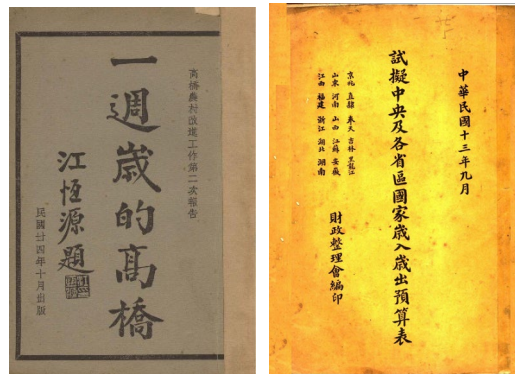 高橋農村改進工作第二次報告
一週歲的高橋
江恆源題
民國廿四年十月出版
中華民國十三年九月
試擬中央及各省區國家歲入歲出預算表
京兆 直隸 奉天 吉林 黑龍江
山東 河南 山西 江蘇 安徽
江西 福建 浙江 湖北 湖南
財政整理會編印